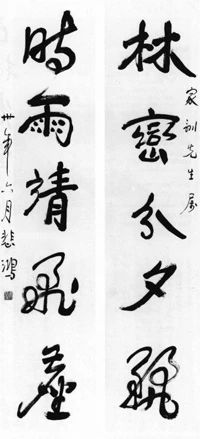 林巒分夕
家訓先生屬
時雨靖飛塵
卅年六月悲鴻